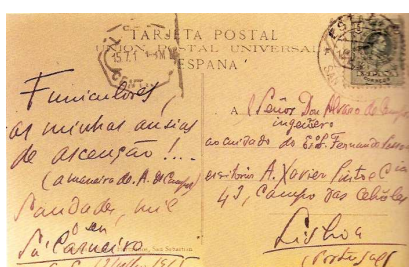 TARJETA POSTAL
UNION POSTAL UNIVERSAL
ESPAÑA
Funiculores,
as minhas ansias
de ascenção!...
(a maneira do A. de Campos)
Saudades, mil
o seu
Sá-Carneiro
A
Señor Don Alvaro de Campos
ingeniero
ao cuidado do Exmo Fernando Pessoa
escritorio A. Xavier Pinto e Cia
43, Campo das Cebolas
Lisboa
(Portugal)